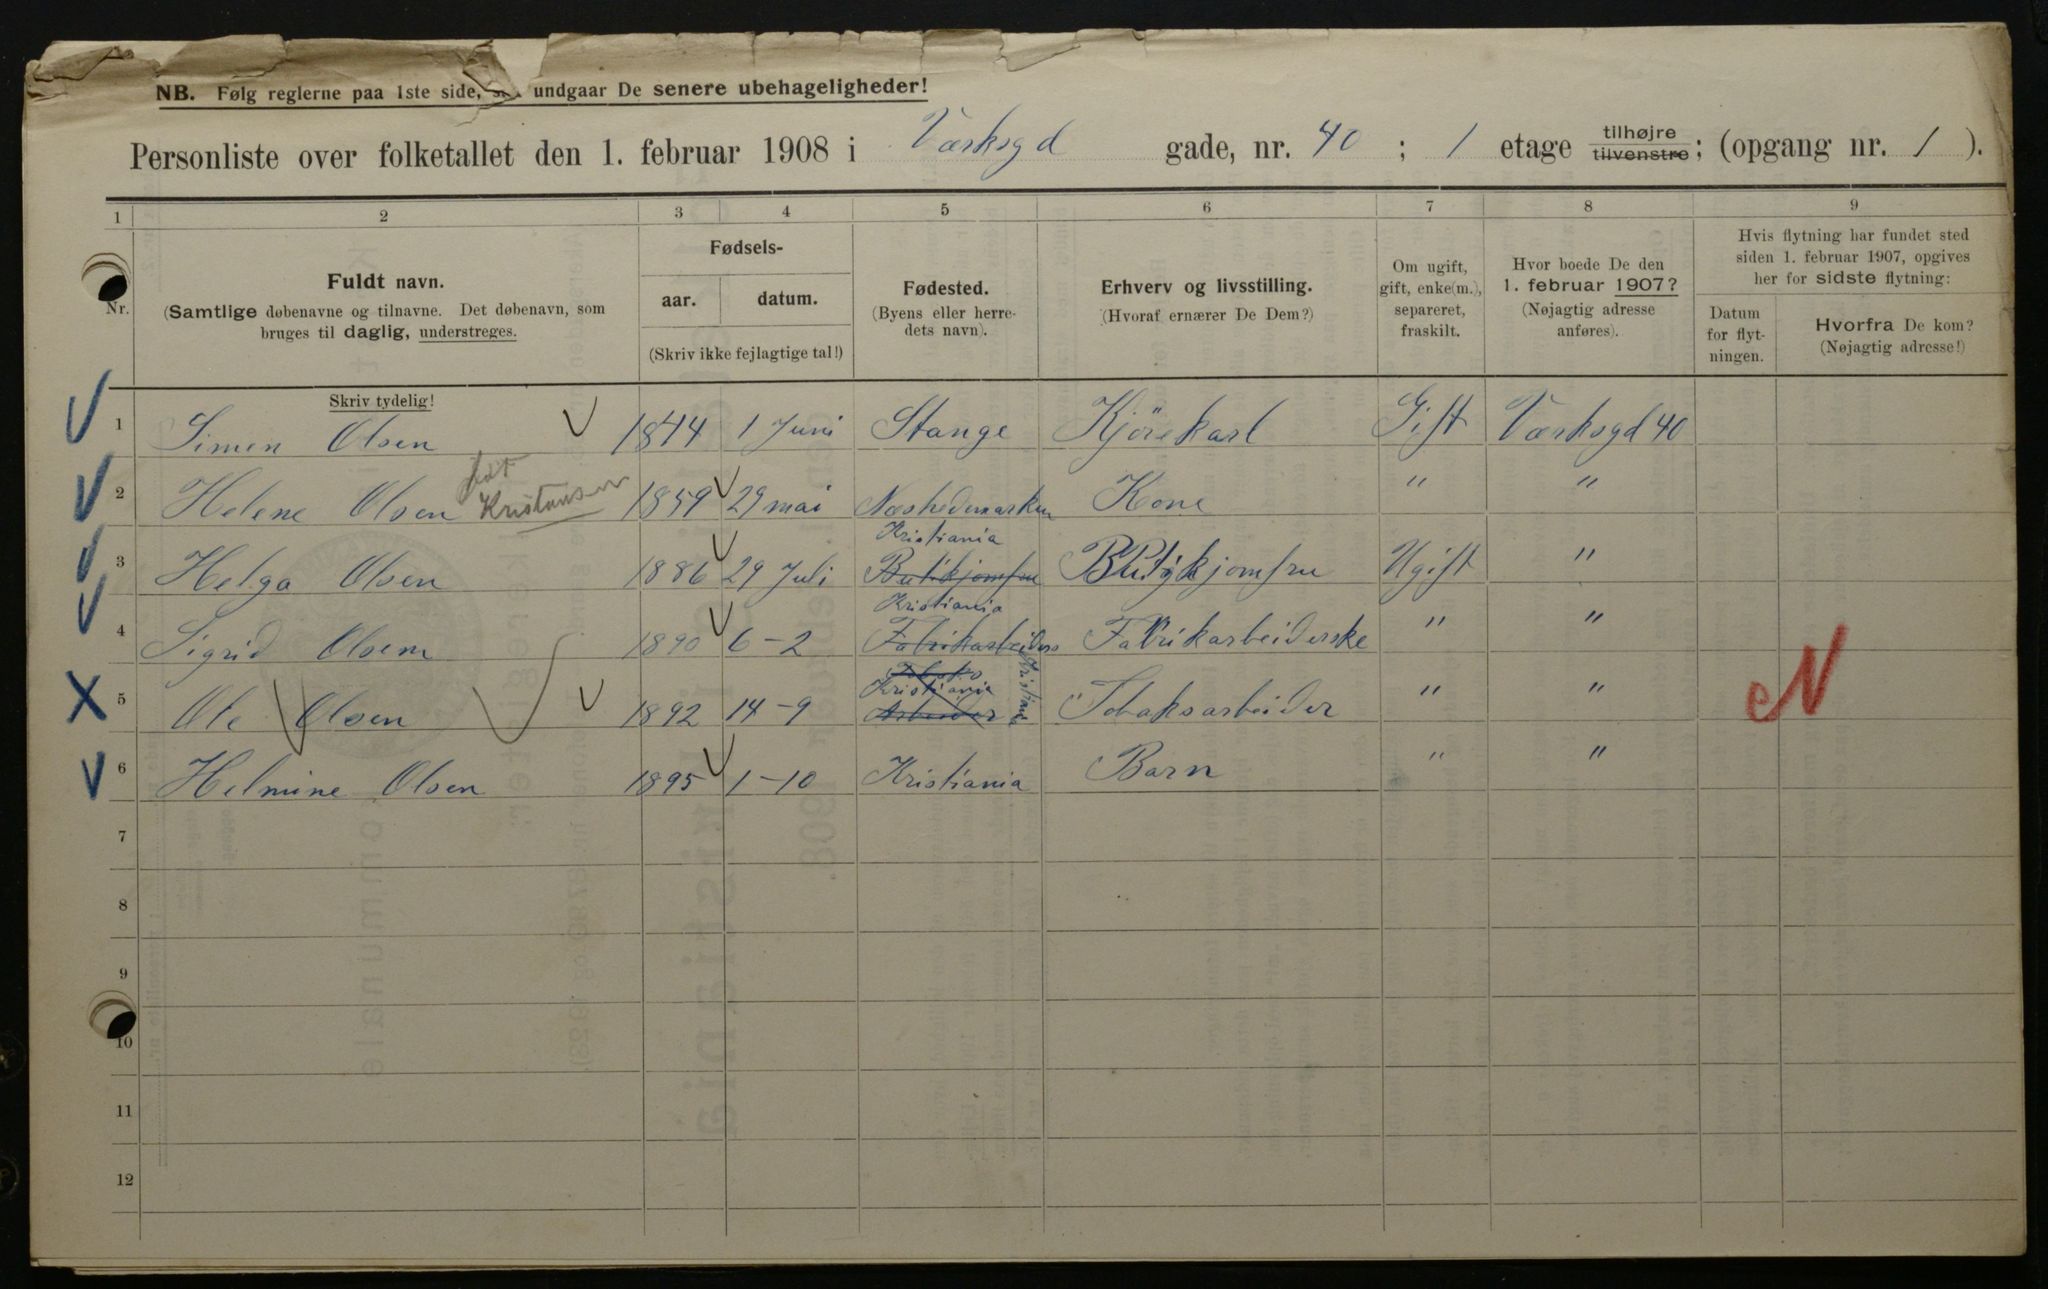 NB. Følg reglerne paa 1ste side, undgaar De senere ubehageligheder!
Personliste over folketallet den 1. februar 1908 i Værksgd gade, nr. 40 ; 1 etage tilhøjre tilvenstre; (opgang nr. 1 ).
1 2 3 4 5 6 7 8 9
Nr.
Fuldt navn.
(Samtlige døbenavne og tilnavne. Det døbenavn, som
bruges til daglig, understreges.
Skriv tydelig!
Fødsels-
aar. datum.
(Skriv ikke fejlagtige tal!)
Fødested.
(Byens eller herre-
dets navn).
Erhverv og livsstilling.
(Hvoraf ernærer De Dem?)
Om ugift,
gift, enke(m.),
separeret,
fraskilt.
Hvor boede De den
1. februar 1907?
(Nøjagtig adresse
anføres).
Hvis flytning har fundet sted
siden 1. februar 1907, opgives
her for sidste flytning:
Datum
for flyt-
ningen.
Hvorfra De kom?
(Nøjagtig adresse!)
1 Simen Olsen 1844 1 Juni Stange Kjörekarl Gift Værksgd 40
2 Helene Olsen født Kristansen 1859 29 mai Næshedemarken Kone " "
Kristiania
3 Helga Olsen 1886 29 Juli Butikjomfru Butikjomfru Ugift "
Kristiania
4 Sigrid Olsen 1890 6-2 Fabrikarbeiders Fabrikarbeiderske " "
Kristiania
5 Ole Olsen 1892 14-9 Arbeider Kristiania Tobaksarbeider " " N
6 Helmine Olsen 1895 1-10 Kristiania Barn " "
7
8
9
10
11
12